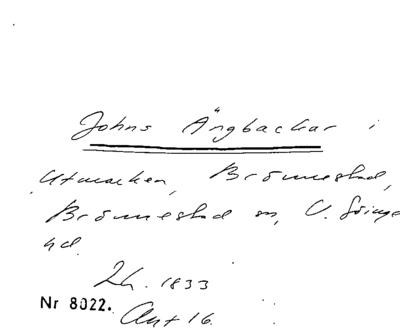 Johns Ängbackar i
Utmarken, Brönnestad,
Brönnestad sn, V. Göinge
hd.
Lh. 1833
Nr 8022. Akt 16.